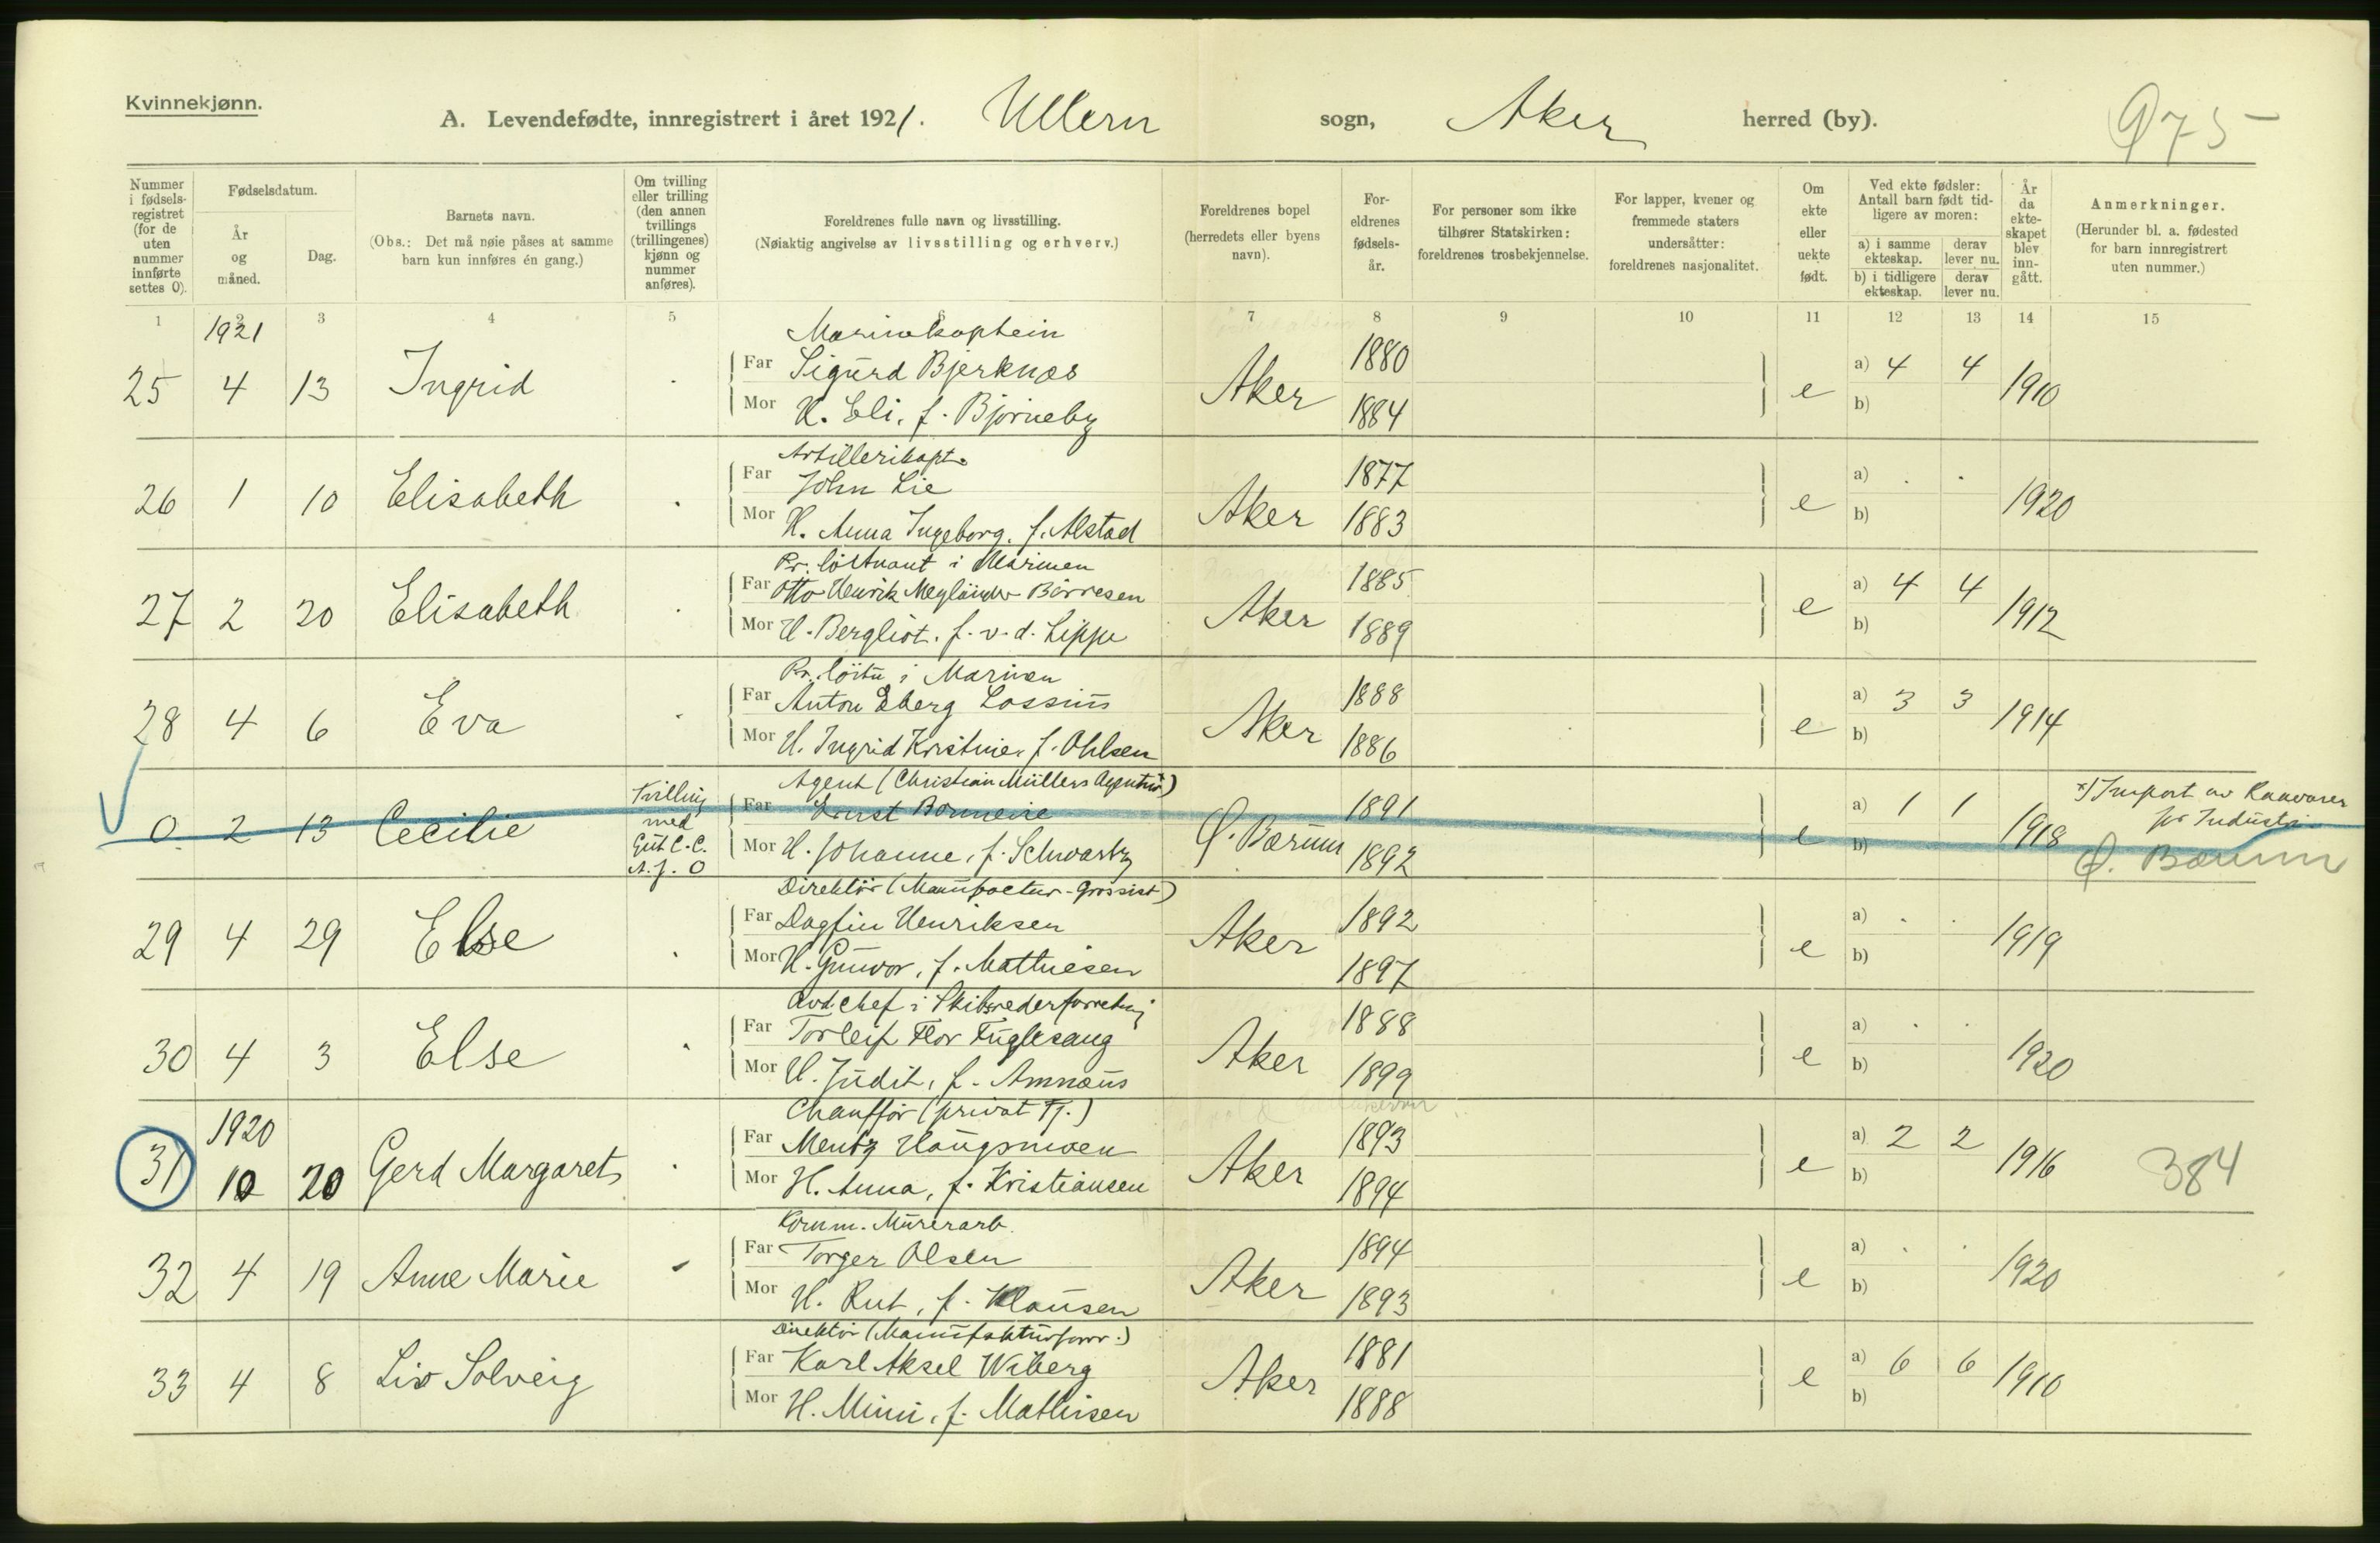 Kvinnekjønn.
A. Levendefødte, innregistrert i året 1921. Ullern sogn, Aker herred (by). 975
Nummer i fødsels-registret (for de uten nummer innførte settes 0).
Fødselsdatum.
År og måned.
Dag.
Barnets navn.
(Obs.: Det må nøie påses at samme barn kun innføres én gang.)
Om tvilling eller trilling (den annen tvillings (trillingenes) kjønn og nummer anføres).
Foreldrenes fulle navn og livsstilling.
(Nøiaktig angivelse av livsstilling og erhverv.)
Foreldrenes bopel (herredets eller byens navn).
For-eldrenes fødsels-år.
For personer som ikke tilhører Statskirken: foreldrenes trosbekjennelse.
For lapper, kvener og fremmede staters undersåtter: foreldrenes nasjonalitet.
Om ekte eller uekte født.
Ved ekte fødsler: Antall barn født tid-ligere av moren:
a) i samme ekteskap. derav lever nu.
b) i tidligere ekteskap. derav lever nu.
År da ekte-skapet blev inn-gått.
Anmerkninger.
(Herunder bl. a. fødested for barn innregistrert uten nummer.)
1 2 3 4 5 6 7 8 9 10 11 12 13 14 15
1921 Marinekaptein
25 4 13 Ingrid . Far Sigurd Bjerknæs Aker 1880 e a) 4 4 1910
Mor H. Eli, f. Bjørneby 1884 b)
Artillerikapt.
26 1 10 Elisabeth . Far John Lie Aker 1877 e a) . . 1920
Mor H. Anna Ingeborg, f. Alstad 1883 b)
Pr. löitnant i Marinen
27 2 20 Elisabeth . Far Otto Henrik Meyländer Börresen Aker 1885 e a) 4 4 1912
Mor H. Bergliot, f. v. d. Lippe 1889 b)
Pr. löitn i Marinen
28 4 6 Eva . Far Anton Eberg Lossius Aker 1888 e a) 3 3 1914
Mor H. Ingrid Kristine, f. Ohlsen 1886 b)
Agent (Christian Müllers Agentur x)
0 2 13 Cecilie Tvilling med Gut C. C. A. J. 0 Far Ernst Bonnevie Ø. Bærum 1891 e a) 1 1 1918 x) Import av Raavarer for Industri
Mor H. Johanne, f. Schwartz 1892 b) Ø. Bærum
Direktör (Manufactur-Grossist)
29 4 29 Else . Far Dagfin Henriksen Aker 1892 e a) . . 1919
Mor H. Gunvor, f. Mathiesen 1897 b)
Avd. chef i Skibsrederforretning
30 4 3 Else . Far Torleif Flor Fuglesang Aker 1888 e a) . . 1920
Mor H. Judit, f. Amnæus 1899 b)
1920 Chauffør (privat Tj.)
31 10 20 Gerd Margaret . Far Mentz Haugsmoen Aker 1893 e a) 2 2 1916 384
Mor H. Anna, f. Kristiansen 1894 b)
Komm. Murerarb.
32 4 19 Anne Marie . Far Torger Olsen Aker 1894 e a) . . 1920
Mor H. Rut, f. Klausen 1893 b)
Direktör (Manufakturforr.)
33 4 8 Liv Solveig Far Karl Aksel Wiberg Aker 1881 e a) 6 6 1910
Mor H. Mimi, f. Mathisen 1888 b)